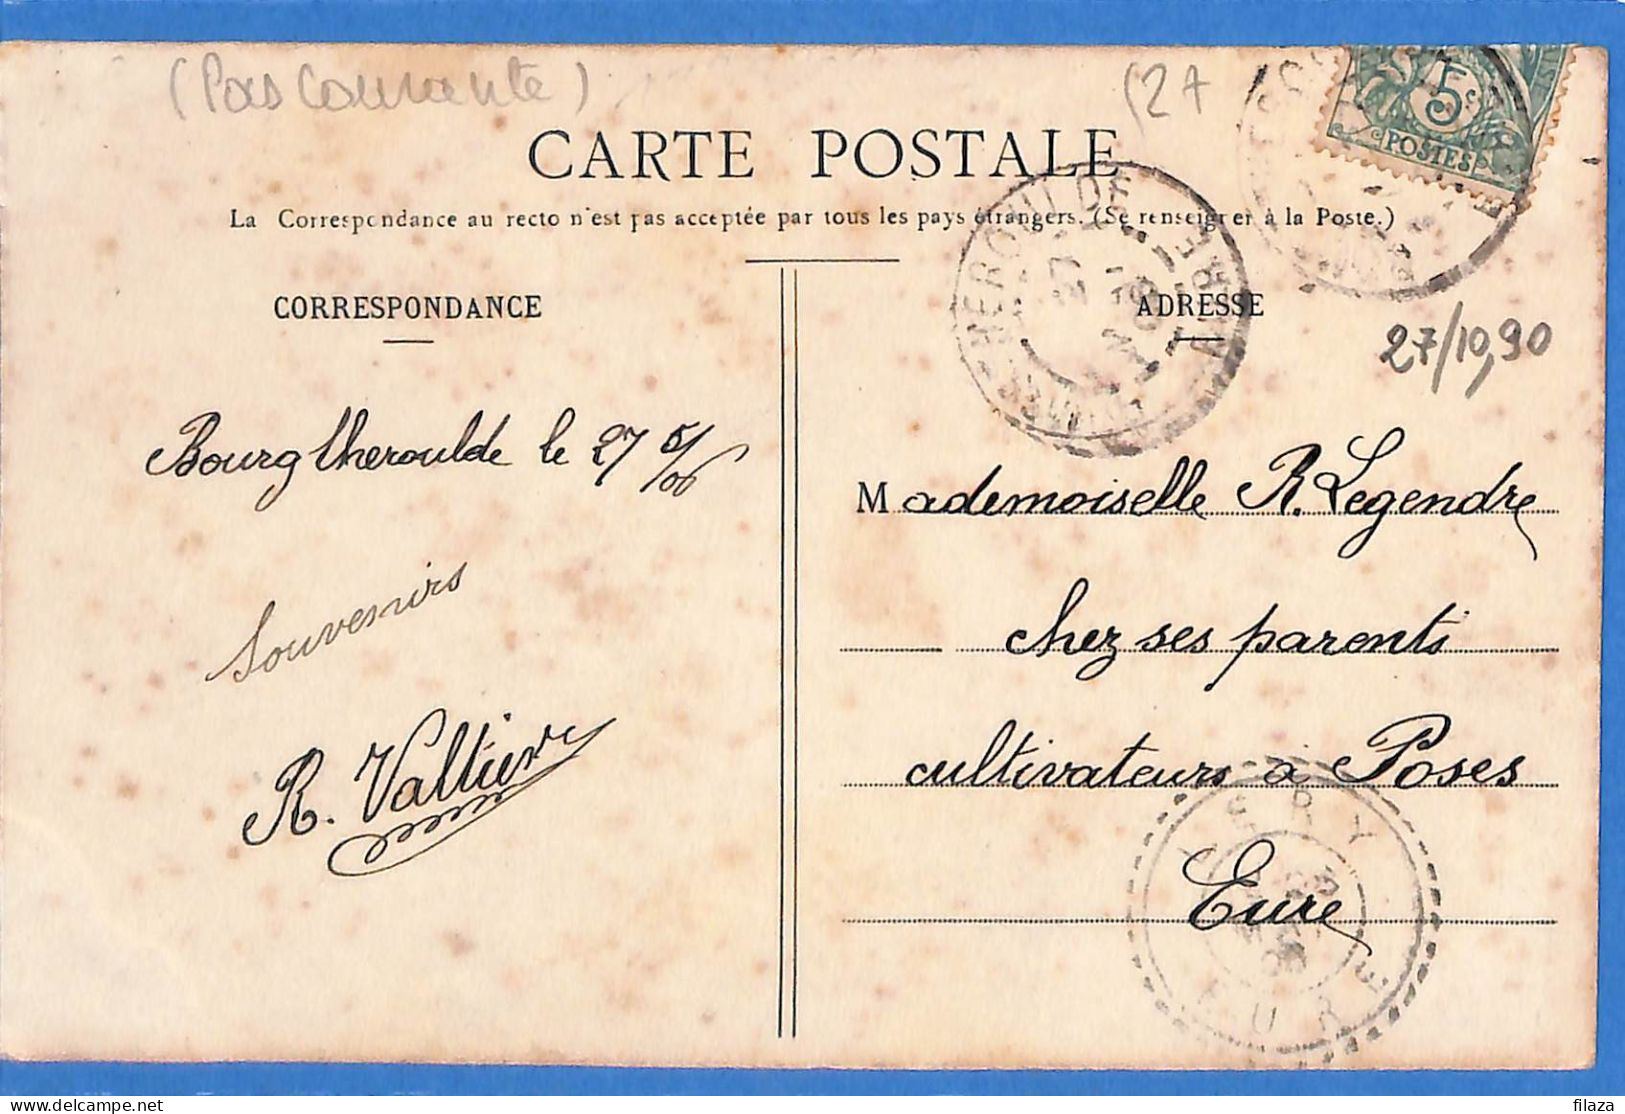 (Pas Courante)
(27
5c
POSTES
CARTE POSTALE
La Correspondance au recto n'est pas acceptée par tous les pays étrangers. (Se renseigner à la Poste.)
HEROULDE
27
CORRESPONDANCE
ADRESSE
27/10,90
Bourgtheroulde le 27 5/06
Mademoiselle R. Legendre
Souvenirs
chez ses parents
R. Vallière
cultivateurs à Poses
Eure
LERY
EURE
delcampe.net
filaza